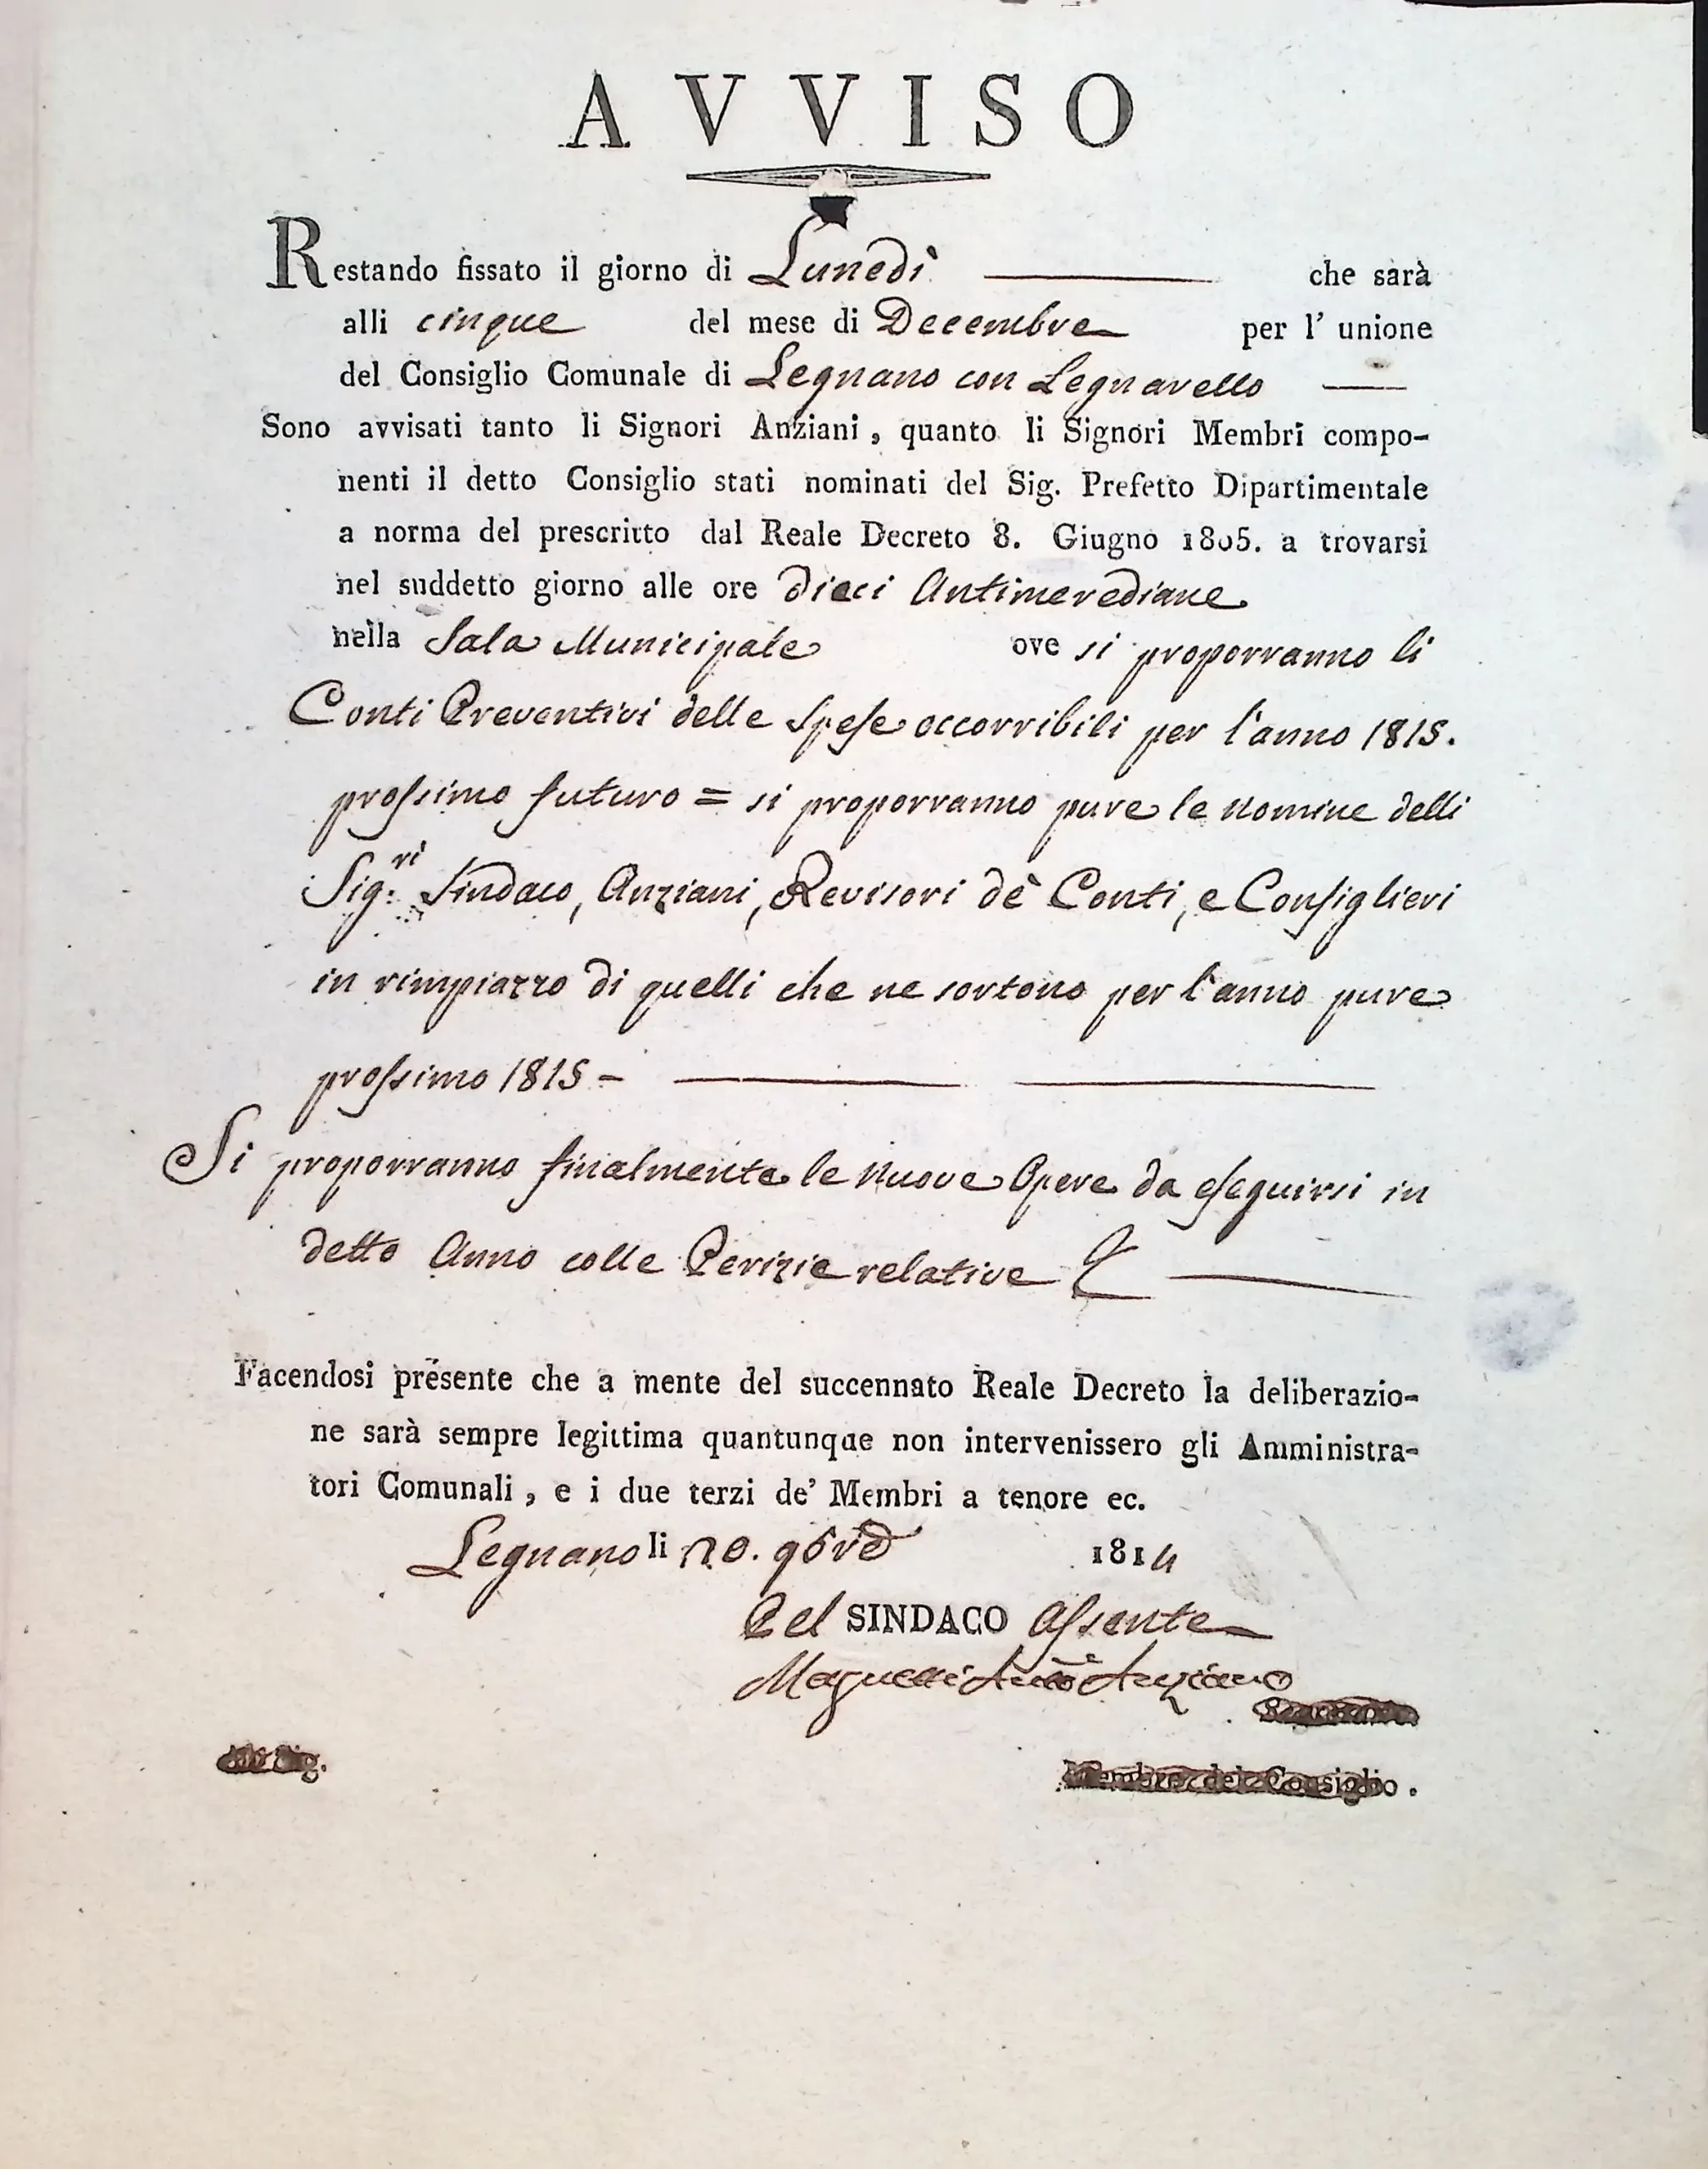 AVVISO
Restando fissato il giorno di Lunedì che sarà
alli cinque del mese di Decembre per l' unione
del Consiglio Comunale di Legnano con Legnarello
Sono avvisati tanto li Signori Anziani, quanto li Signori Membri compo-
nenti il detto Consiglio stati nominati del Sig. Prefetto Dipartimentale
a norma del prescritto dal Reale Decreto 8. Giugno 1805. a trovarsi
nel suddetto giorno alle ore dieci Antimerediane
nella Sala Municipale ove si proporranno li
Conti Preventivi delle Spese occorribili per l'anno 1815.
prossimo futuro = si proporranno pure le nomine delli
Sig:ri Sindaco, Anziani, Revisori dè Conti, e Consiglieri
in rimpiazzo di quelli che ne sortono per l'anno pure
prossimo 1815 -
Si proporranno finalmente le nuove Opere da eseguirsi in
detto Anno colle Perizie relative
Facendosi présente che a mente del succennato Reale Decreto la deliberazio-
ne sarà sempre legittima quantunque non intervenissero gli Amministra-
tori Comunali, e i due terzi de' Membri a tenore ec.
Legnano li 20. 9bre 1814
Pel SINDACO Assente
Anziano
Sig.
Membro del Consiglio.